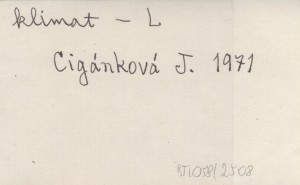 klimat - L
Cigánková J. 1971
RT1058/2508